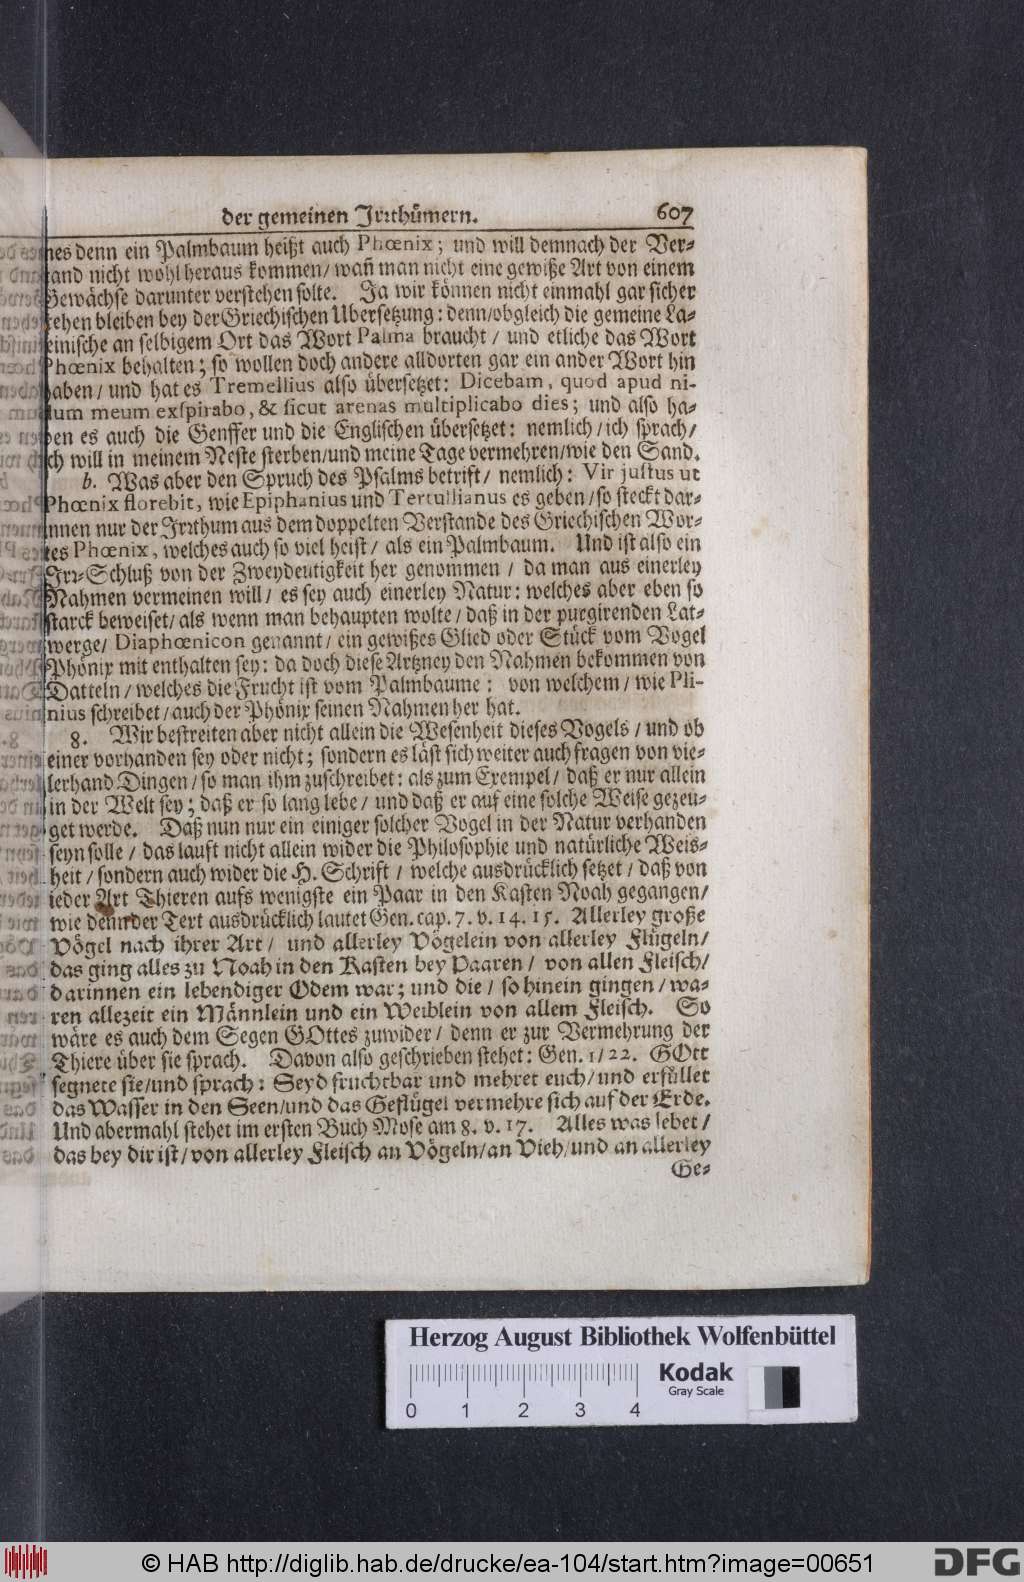 der gemeinen Irrthümern. 607
nes denn ein Palmbaum heißt auch Phœnix; und will demnach der Ver-
and nicht wohl heraus kommen/ wañ man nicht eine gewiße Art von einem
Gewächse darunter verstehen solte. Ja wir können nicht einmahl gar sicher
ehen bleiben bey der Griechischen Ubersetzung: denn/ obgleich die gemeine La-
einische an selbigem Ort das Wort Palma braucht/ und etliche das Wort
Phœnix behalten; so wollen doch andere alldorten gar ein ander Wort hin
haben/ und hat es Tremellius also übersetzet: Dicebam, quod apud ni-
lum meum exspirabo, & sicut arenas multiplicabo dies; und also ha-
ben es auch die Genffer und die Englischen übersetzet: nemlich/ ich sprach/
ich will in meinem Neste sterben/ und meine Tage vermehren/ wie den Sand.
b. Was aber den Spruch des Psalms betrift/ nemlich: Vir justus ut
Phœnix florebit, wie Epiphanius und Tertullianus es geben/ so steckt dar-
innen nur der Irrthum aus dem doppelten Verstande des Griechischen Wor-
tes Phœnix, welches auch so viel heist/ als ein Palmbaum. Und ist also ein
Irr-Schluß von der Zweydeutigkeit her genommen/ da man aus einerley
Nahmen vermeinen will/ es sey auch einerley Natur: welches aber eben so
starck beweiset/ als wenn man behaupten wolte/ daß in der purgirenden Lat-
werge/ Diaphœnicon genannt/ ein gewißes Glied oder Stück vom Vogel
Phönix mit enthalten sey: da doch diese Artzney den Nahmen bekommen von
Datteln/ welches die Frucht ist vom Palmbaume: von welchem/ wie Pli-
nius schreibet/ auch der Phönix seinen Nahmen her hat.
8. Wir bestreiten aber nicht allein die Wesenheit dieses Vogels/ und ob
einer vorhanden sey oder nicht; sondern es läst sich weiter auch fragen von vie-
lerhand Dingen/ so man ihm zuschreibet: als zum Exempel/ daß er nur allein
in der Welt sey; daß er so lang lebe/ und daß er auf eine solche Weise gezeu-
get werde. Daß nun nur ein einiger solcher Vogel in der Natur verhanden
seyn solle/ das lauft nicht allein wider die Philosophie und natürliche Weis-
heit/ sondern auch wider die H. Schrift/ welche ausdrücklich setzet/ daß von
ieder Art Thieren aufs wenigste ein Paar in den Kasten Noah gegangen/
wie denn der Text ausdrücklich lautet Gen. cap. 7. v. 14. 15. Allerley große
Vögel nach ihrer Art/ und allerley Vögelein von allerley Flügeln/
das ging alles zu Noah in den Kasten bey Paaren/ von allen Fleisch/
darinnen ein lebendiger Odem war; und die/ so hinein gingen/ wa-
ren allezeit ein Männlein und ein Weiblein von allem Fleisch. So
wäre es auch dem Segen GOttes zuwider/ denn er zur Vermehrung der
Thiere über sie sprach. Davon also geschrieben stehet: Gen. 1/22. GOtt
segnete sie/ und sprach: Seyd fruchtbar und mehret euch/ und erfüllet
das Wasser in den Seen/ und das Geflügel vermehre sich auf der Erde.
Und abermahl stehet im ersten Buch Mose am 8. v. 17. Alles was lebet/
das bey dir ist/ von allerley Fleisch an Vögeln/ an Vieh/ und an allerley
Ge-
Herzog August Bibliothek Wolfenbüttel
0 1 2 3 4
Kodak
Gray Scale
© HAB http://diglib.hab.de/drucke/ea-104/start.htm?image=00651
DFG